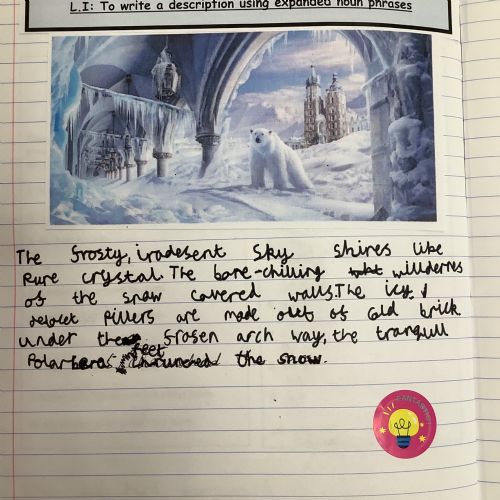 L.I: To write a description using expanded noun phrases
The frosty, iradesent sky shires like
Pure crystal. The bone-chilling willdernes
of the snow covered walls. The icy,
pillers are made out of cold brick
under the frosen arch way, the tranquil
Polar feet the snow.
FANTASTIC!